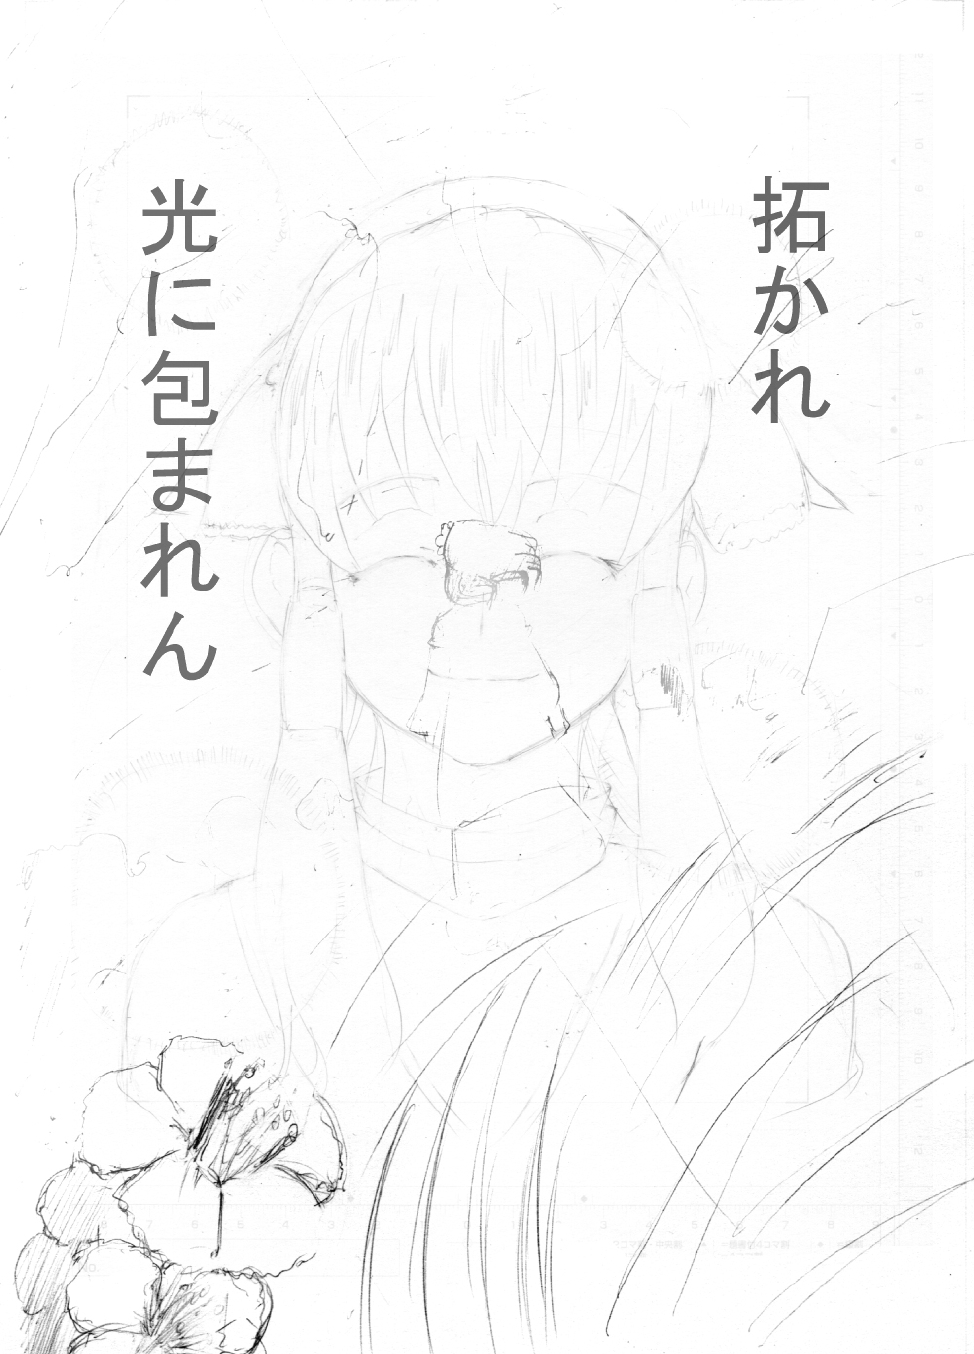 拓かれ
光に包まれん